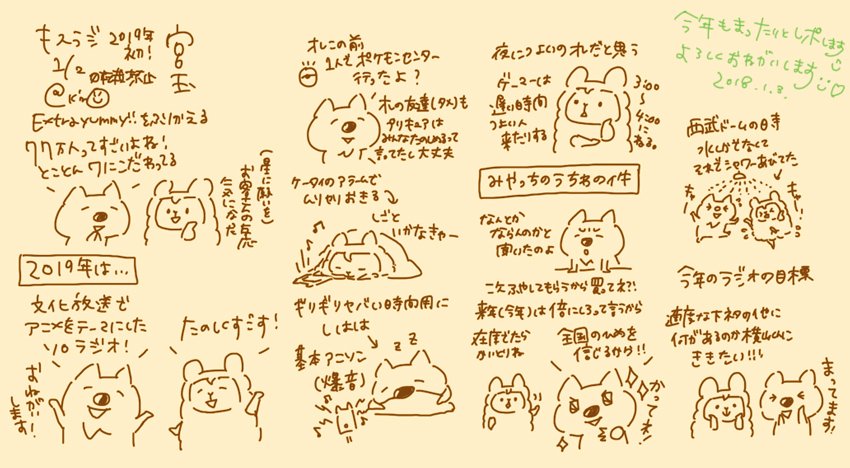 キスラジ 2019年
初!
1/2
宮
玉
@Kis
Extra yummy!!をふりかえる
77万人ってすごいよね!
とことん7にこだわってる
(星に願いを)
お客さんの反応
気になった
2019年は…
文化放送で
アニメをテーマにした
ソロラジオ!
おねがい
します!
たのしくすごす!
オレこの前
1人でポケモンセンター
行ったよ?
オレの友達(タメ)も
プリキュアは
みんなたのしめるって
言ってたし大丈夫
ケータイのアラームで
ムリヤリおきる
しごと
いかなきゃー
ギリギリヤバい時間用に
基本アニソン
(爆音)
zz
夜につよいのオレだと思う
ゲーマーは
遅い時間
つよい人
来たりする
3:00
~
4:00
に
ねる。
みやっちのうちわの件
なんとか
ならんのかと
聞いたのよ
こんどふやしてもらうから買ってネ?!
来年(今年)は倍にしろって言うから
在庫でたら
かいとりね
全国のひめを
信じるから!!
かってネ!
今年もまったりとレポします
よろしくおねがいします
2018.1.3.
西武ドームの時
水しかでなくて
それでシャワーあびてた
今年のラジオの目標
適度な下ネタのイセに
何があるのか横山に
ききたい!!!
まってます!